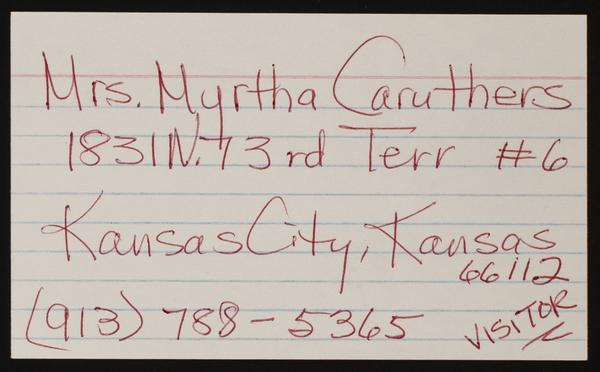 Mrs. Myrtha Caruthers
1831 N. 73rd Terr #6
Kansas City, Kansas
66112
(913) 788-5365
VISITOR